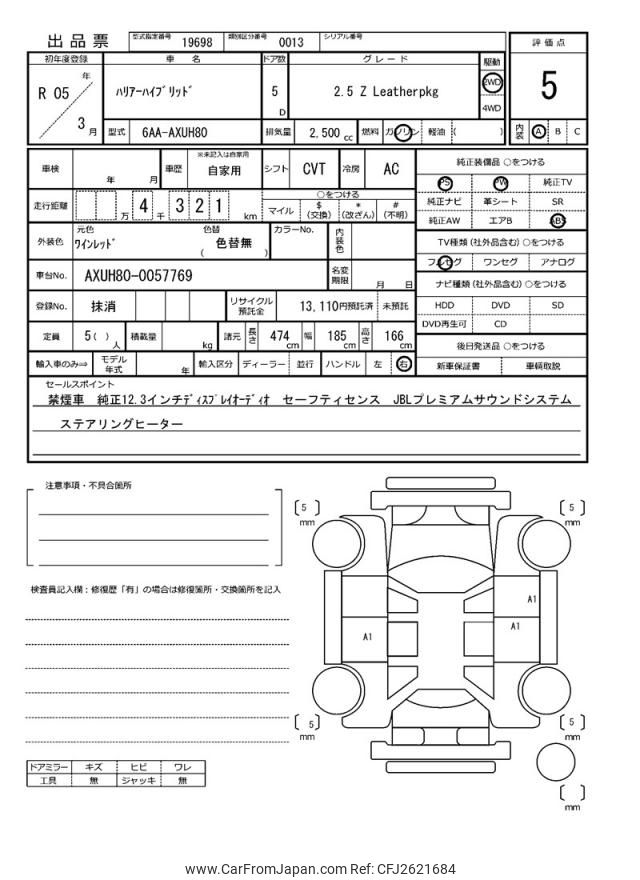 出 品 票 型式指定番号 19698 類別区分番号 0013 シリアル番号
初年度登録 車 名 ドア数 グレード 駆動 評 価 点
R 05 年 3 月 ハリアーハイブリッド 5 D 2.5 Z Leatherpkg 2WD 4WD 5
型式 6AA-AXUH80 排気量 2,500 cc 燃料 ガソリン 軽油 ( ) 内装 A B C
車検 年 月 車歴 ※未記入は自家用 自家用 シフト CVT 冷房 AC 純正装備品 ○をつける
PS PW 純正TV
走行距離 万 4 千 3 2 1 km ○をつける マイル $ (交換) * (改ざん) # (不明) 純正ナビ 革シート SR
純正AW エアB ABS
外装色 元色 ワインレッド 色替 色替無 ( ) カラーNo. 内装色 TV種類 (社外品含む) ○をつける
フルセグ ワンセグ アナログ
車台No. AXUH80-0057769 名変期限 月 日 ナビ種類 (社外品含む) ○をつける
登録No. 抹消 リサイクル預託金 13,110円預託済 未預託 HDD DVD SD
DVD再生可 CD
定員 5 ( ) 人 積載量 kg 諸元 長さ 474 cm 幅 185 cm 高さ 166 cm 後日発送品 ○をつける
輸入車のみ⇒ モデル年式 年 輸入区分 ディーラー 並行 ハンドル 左 右 新車保証書 車輌取説
セールスポイント
禁煙車 純正12.3インチディスプレイオーディオ セーフティセンス JBLプレミアムサウンドシステム
ステアリングヒーター
注意事項・不具合箇所
検査員記入欄：修復歴「有」の場合は修復箇所・交換箇所を記入
5 mm
5 mm
A1
A1
A1
5 mm
5 mm
mm
ドアミラー キズ ヒビ ワレ
工具 無 ジャッキ 無
www.CarFromJapan.com Ref: CFJ2621684